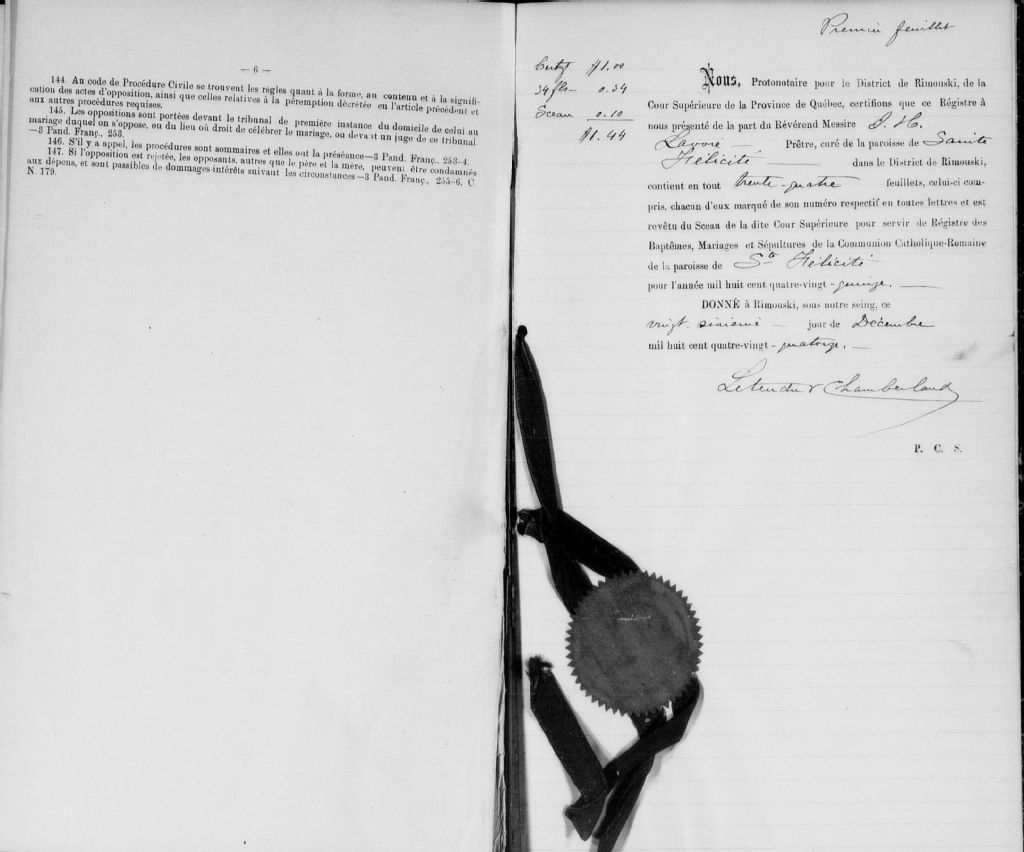 — 6 —
144. Au code de Procédure Civile se trouvent les règles quant à la forme, au contenu et à la signifi-
cation des actes d'opposition, ainsi que celles relatives à la péremption décrétée en l'article précédent et
aux autres procédures requises.
145. Les oppositions sont portées devant le tribunal de première instance du domicile de celui au
mariage duquel on s'oppose, ou du lieu où droit de célébrer le mariage, ou devant un juge de ce tribunal
—3 Pand. Franç., 253.
146. S'il y a appel, les procédures sont sommaires et elles ont la préséance—3 Pand. Franç., 253-4.
147. Si l'opposition est rejetée, les opposants, autres que le père et la mère, peuvent être condamnés
aux dépens, et sont passibles de dommages-intérêts suivant les circonstances—3 Pand. Franç., 255-6, C
N. 179.
Premier feuillet
Certift $1.00
34 flts — 0.34
Sceau 0.10
$1.44
Nous, Protonotaire pour le District de Rimouski, de la
Cour Supérieure de la Province de Québec, certifions que ce Régistre à
nous présenté de la part du Révérend Messire J. H.
Lavoie — Prêtre, curé de la paroisse de Sainte
Félicité — dans le District de Rimouski,
contient en tout trente-quatre feuillets, celui-ci com-
pris, chacun d'eux marqué de son numéro respectif en toutes lettres et est
revêtu du Sceau de la dite Cour Supérieure pour servir de Régistre des
Baptêmes, Mariages et Sépultures de la Communion Catholique-Romaine
de la paroisse de Ste Félicité
pour l'année mil huit cent quatre-vingt-quinze. —
DONNÉ à Rimouski, sous notre seing, ce
vingt-sixième — jour de Décembre
mil huit cent quatre-vingt-quatorze. —
Letendre & Chamberland
P. C. S.